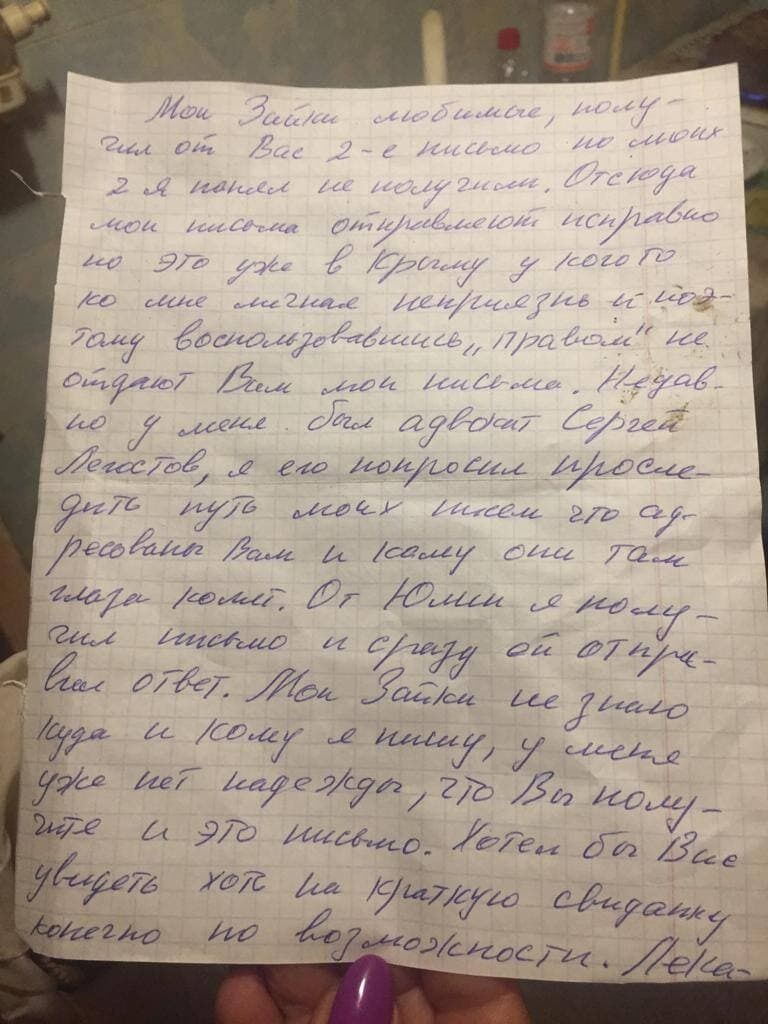 Мои Зайки любимые, полу-
чил от Вас 2-е письмо но моих
2 я понял не получили. Отсюда
мои письма отправляют исправно
но это уже в Крыму у кого то
ко мне личная неприязнь и поэ-
тому воспользовавшись „правом" не
отдают Вам мои письма. Недав-
но у меня был адвокат Сергей
Легостов, я его попросил просле-
дить путь моих писем что ад-
ресованы Вам и кому они там
глаза колят. От Юлии я полу-
чил письмо и сразу ей отпра-
вил ответ. Мои Зайки не знаю
куда и кому я пишу, у меня
уже нет надежды, что Вы полу-
чите и это письмо. Хотел бы Вас
увидеть хоть на краткую свиданку
конечно по возможности. Лека-